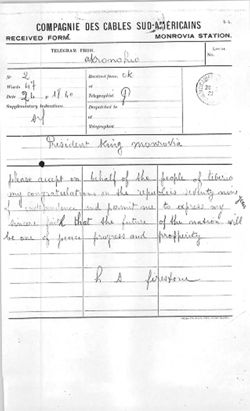 COMPAGNIE DES CABLES SUD-AMÉRICAINS
RECEIVED FORM. MONROVIA STATION.
TELEGRAM FROM. akronohio
No 2
Words 47
Date 24
Supplementary Instructions
Received from ck
Telegraphist
Despatched to
at
Telegraphist
President King monrovia
please accept on behalf of the people of liberia
my congratulations on the republics seventy nine years
of independence and permit me to express my
sincere faith that the future of the nation will
be one of peace progress and prosperity
h s firestone